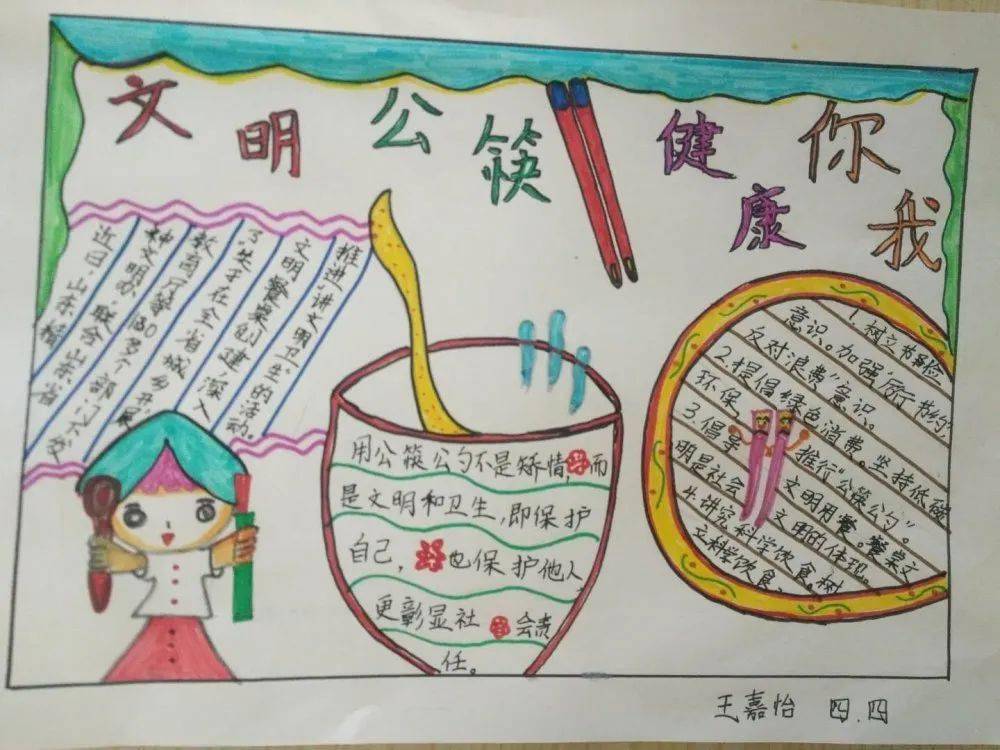 文明公筷 健康你我
近日,山东精
神文明办,联合山东省
教育厅等30多个部门下发
了"关于在全省城乡开展
文明餐桌创建深入
推进"讲文明卫生的活动。
用公筷公勺不是矫情,而
是文明和卫生,即保护
自己,也保护他人
更彰显社会责
任。
1.树立节俭
意识。加强"厉行节约,
反对浪费"意识。
2.提倡绿色消费。坚持低碳
环保
3.倡导推行"公筷公勺"。
文明用餐。餐桌文
明是社会文明的体现。
4.讲究科学饮食,树
文科学饮食、
王嘉怡 四.四